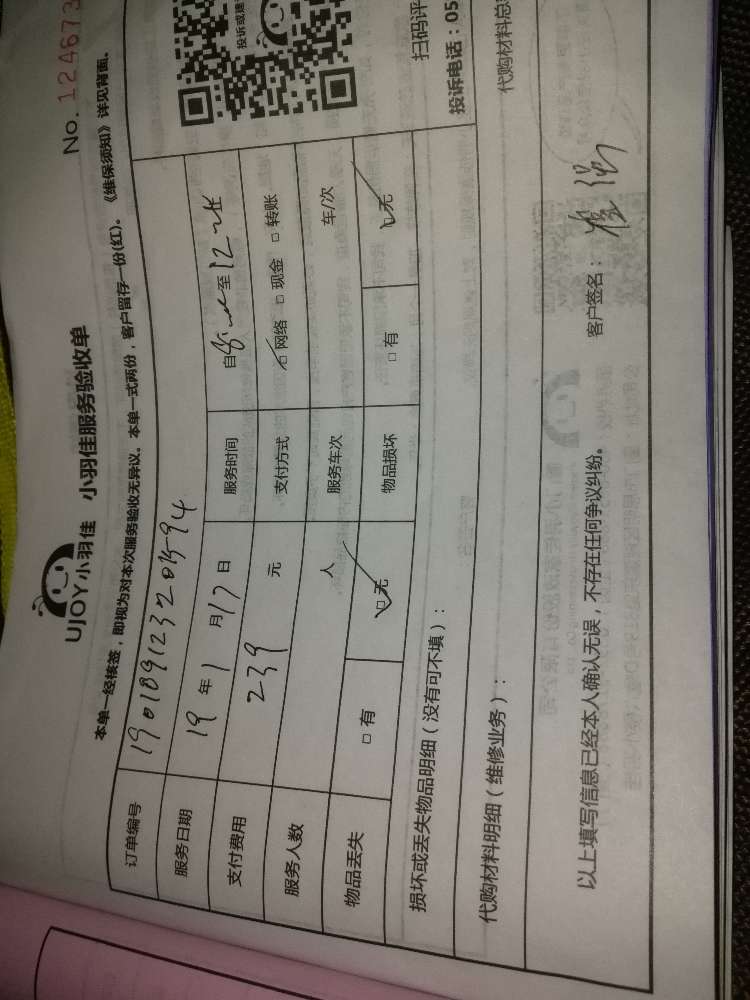 UJOY小羽佳 小羽佳服务验收单
No. 124673
本单一经核签，即视为对本次服务验收无异议。本单一式两份，客户留存一份(红)。《维保须知》详见背面。
订单编号 190109123201594
服务日期 19年1月17日 服务时间 自 至12
支付费用 239元 支付方式 ☑网络 □现金 □转账
服务人数 人 服务车次 车/次
物品丢失 □有 ☑无 物品损坏 □有 ☑无
损坏或丢失物品明细（没有可不填）：
代购材料明细（维修业务）： 代购材料总
以上填写信息已经本人确认无误，不存在任何争议纠纷。 客户签名：
投诉或建
扫码评
投诉电话：05